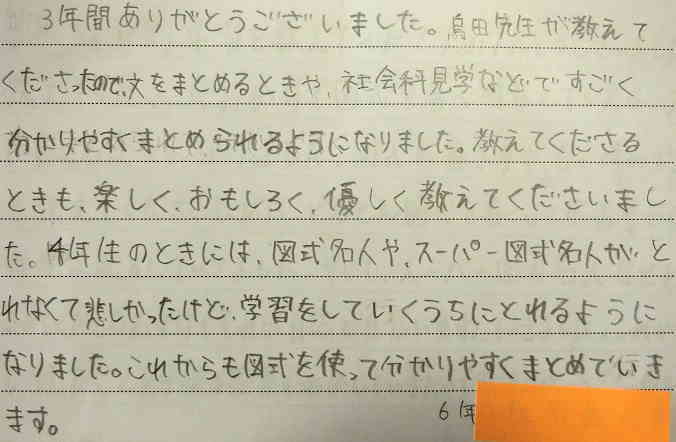 3年間ありがとうございました。島田先生が教えて
くださったので、文をまとめるときや、社会科見学などですごく
分かりやすくまとめられるようになりました。教えてくださる
ときも、楽しく、おもしろく、優しく教えてくださいまし
た。4年生のときには、図式名人や、スーパー図式名人がと
れなくて悲しかったけど、学習をしていくうちにとれるように
なりました。これからも図式を使って分かりやすくまとめていき
ます。
6年